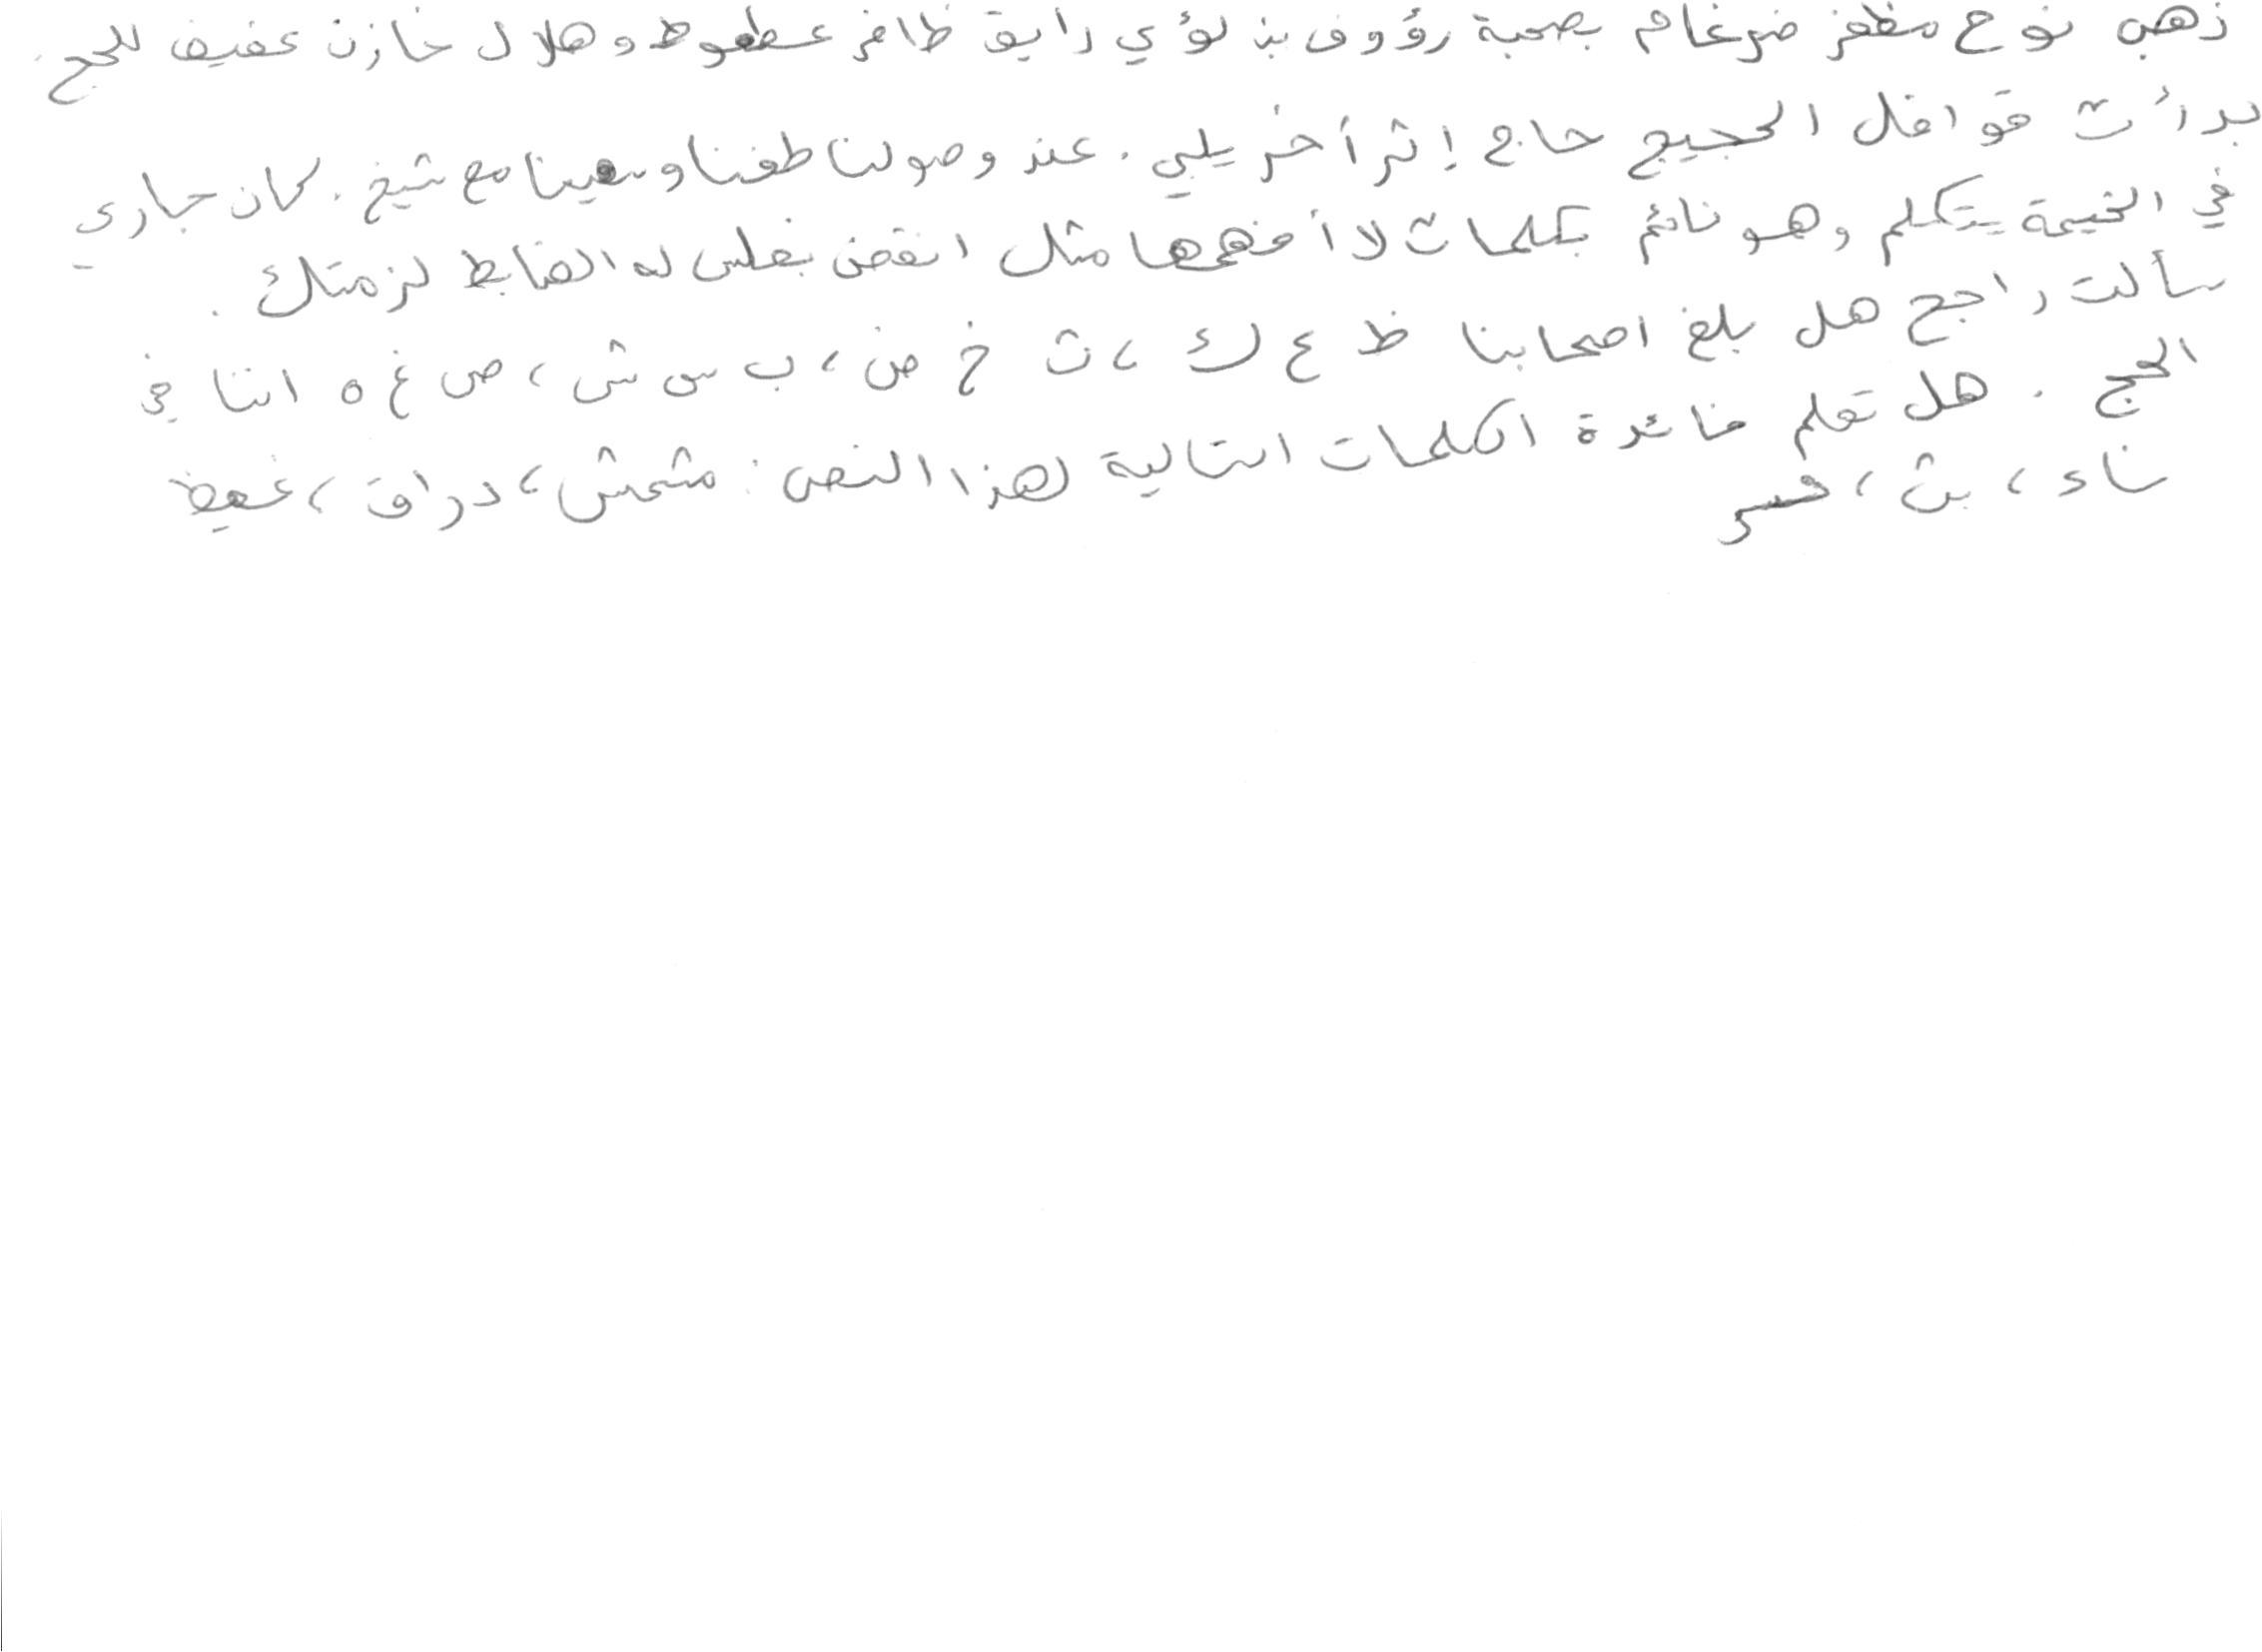 ذهب نوح مظفر ضرغام بصحبة رؤوف بن لؤي رايق ظافر عطعوط و هلال خازن عفيف للحج.
بدأت قوافل الحجيج حاج إثر أخر يلبي. عند وصولنا طفنا وسعينا مع شيخ. كان جاري
في الخيمة يتكلم وهو نائم بكلمات لا أفهمها مثل انقض بغلس له الضابط لزمتك.
سألت راجح هل بلغ اصحابنا ظ ع ك، ث خ ض، ب س ش، ص غ ه اننا في
الحج. هل تعلم فائدة الكلمات التالية لهذا النص: مشمش، دراق، غيظ
ساء، بث،